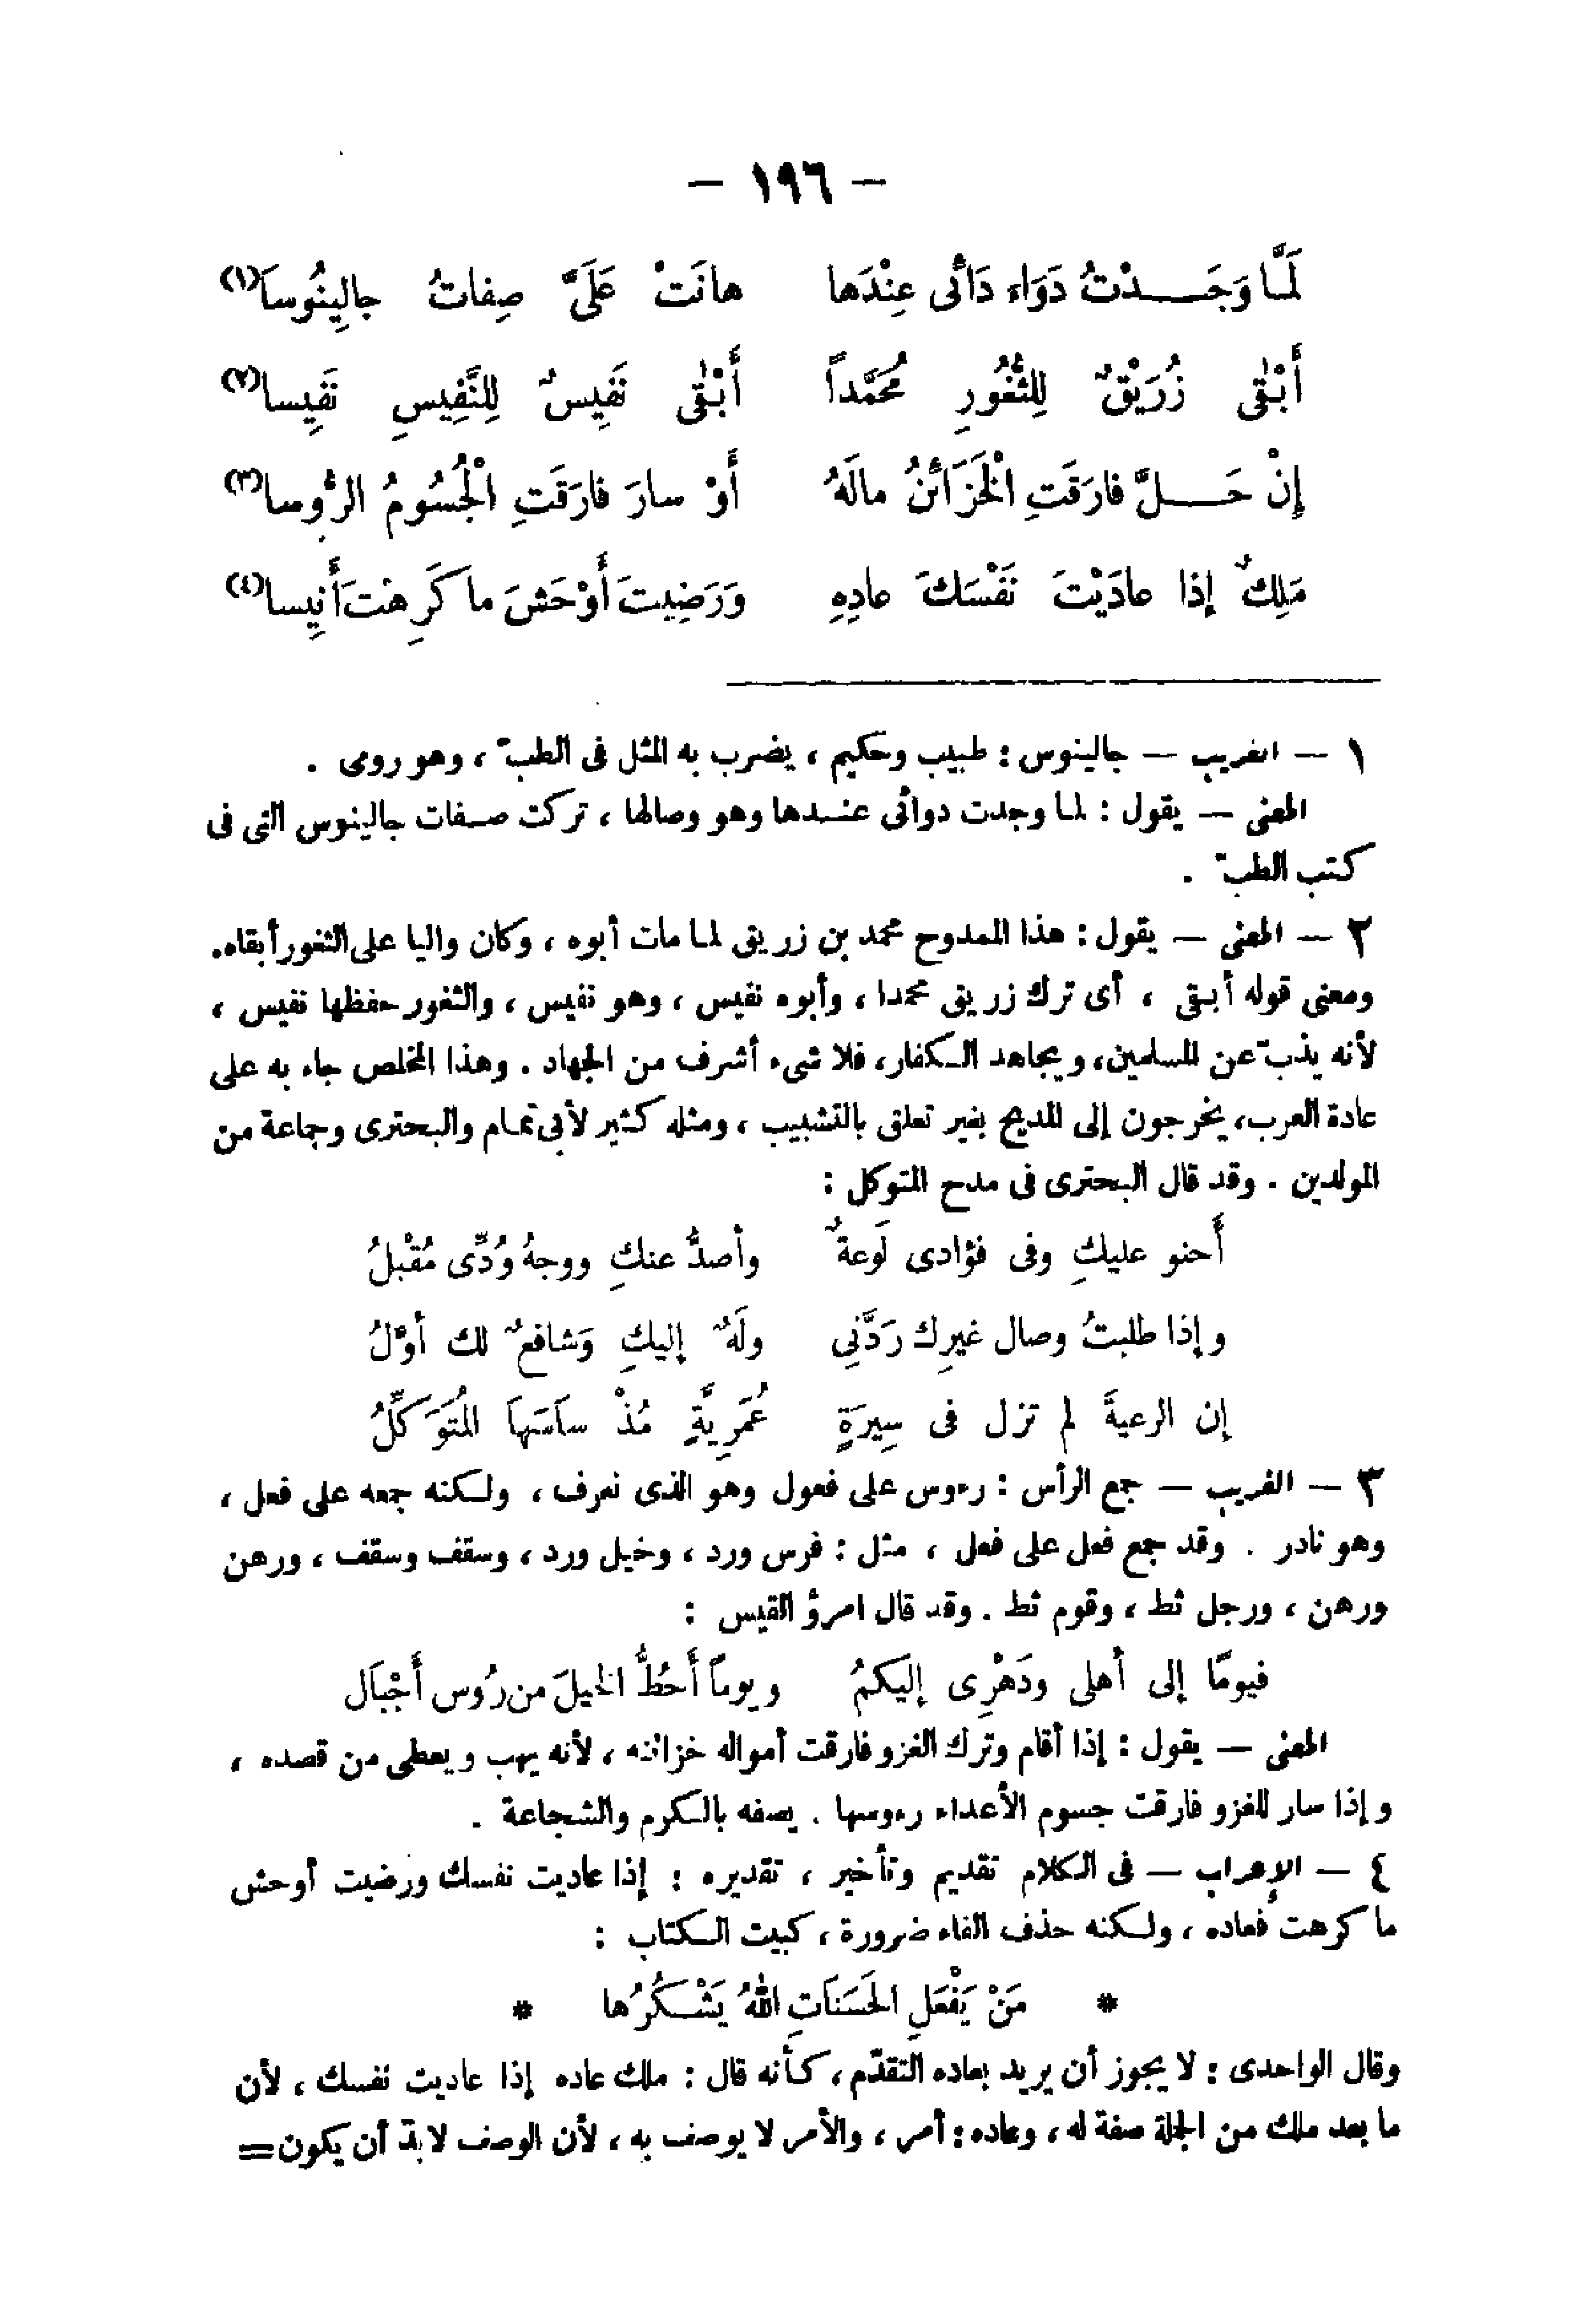 — ١٩٦ —
لَمَّا وَجَدْتُ دَوَاء دَائى عِنْدَها هانَتْ عَلَىَّ صِفاتُ جالِينُوسَا(١)
أَبْقٰى زُرَيْقٌ لِلثُّغُورِ مُحَمَّداً أَبْقٰى نَفِيسٌ لِلنَّفِيسِ نَفِيسا(٢)
إِنْ حَلَّ فارَقَتِ الْخَزَائنُ مالَهُ أَوْ سارَ فارَقَتِ الْجُسُومُ الرُّوسا(٣)
مَلِكٌ إذا عادَيْتَ نَفْسَكَ عادِهِ وَرَضِيتَ أَوْحَشَ ما كَرِهْتَ أَنِيسا(٤)
١ — الغريب — جالينوس : طبيب وحكيم ، يضرب به المثل فى الطبّ ، وهو رومى .
المعنى — يقول : لما وجدت دوائى عندها وهو وصالها ، تركت صفات جالينوس التى فى
كتب الطبّ .
٢ — المعنى — يقول : هذا الممدوح محمد بن زريق لما مات أبوه ، وكان واليا على الثغور أبقاه.
ومعنى قوله أبقى ، أى ترك زريق محمدا ، وأبوه نفيس ، وهو نفيس ، والثغور حفظها نفيس ،
لأنه يذبّ عن المسلمين، ويجاهد الكفار، فلا شىء أشرف من الجهاد . وهذا المخلص جاء به على
عادة العرب، يخرجون إلى المديح بغير تعلق بالتشبيب ، ومثله كثير لأبى تمام والبحترى وجماعة من
المولدين . وقد قال البحترى فى مدح المتوكل :
أَحنو عليكِ وفى فؤادى لَوعةٌ وأصدُّ عنكِ ووجهُ وُدِّى مُقْبلُ
وإذا طلبتُ وصال غيرِك رَدَّنِى ولَهٌ إليكِ وَشافعٌ لك أوّلُ
إن الرعيةَ لم تزل فى سِيرَةٍ عُمَرِيَّةٍ مُذْ ساَسَهاَ المُتَوَكِّلُ
٣ — الغريب — جمع الرأس : رءوس على فعول وهو الذى نعرف ، ولكنه جمعه على فعل ،
وهو نادر . وقد جمع فعل على فعل ، مثل : فرس ورد ، وخيل ورد ، وسقف وسقف ، ورهن
ورهن ، ورجل ثط ، وقوم ثط . وقد قال امرؤ القيس :
فيومًا إلى أهلى ودَهْرِى إليَكمُ ويوماً أَحُطُّ الخيلَ من رُوس أَجْبَال
المعنى — يقول : إذا أقام وترك الغزو فارقت أمواله خزائنه ، لأنه يهب ويعطى من قصده ،
وإذا سار للغزو فارقت جسوم الأعداء رءوسها . يصفه بالكرم والشجاعة .
٤ — الإعراب — فى الكلام تقديم وتأخير ، تقديره : إذا عاديت نفسك ورضيت أوحش
ما كرهت فعاده ، ولكنه حذف الفاء ضرورة ، كبيت الكتاب :
* مَنْ يَفْعَلِ الحَسَنَاتِ اللهُ يَشْكُرُها *
وقال الواحدى : لا يجوز أن يريد بعاده التقدّم ، كأنه قال : ملك عاده إذا عاديت نفسك ، لأن
ما بعد ملك من الجملة صفة له ، وعاده : أمر ، والأمر لا يوصف به ، لأن الوصف لا بدّ أن يكون=